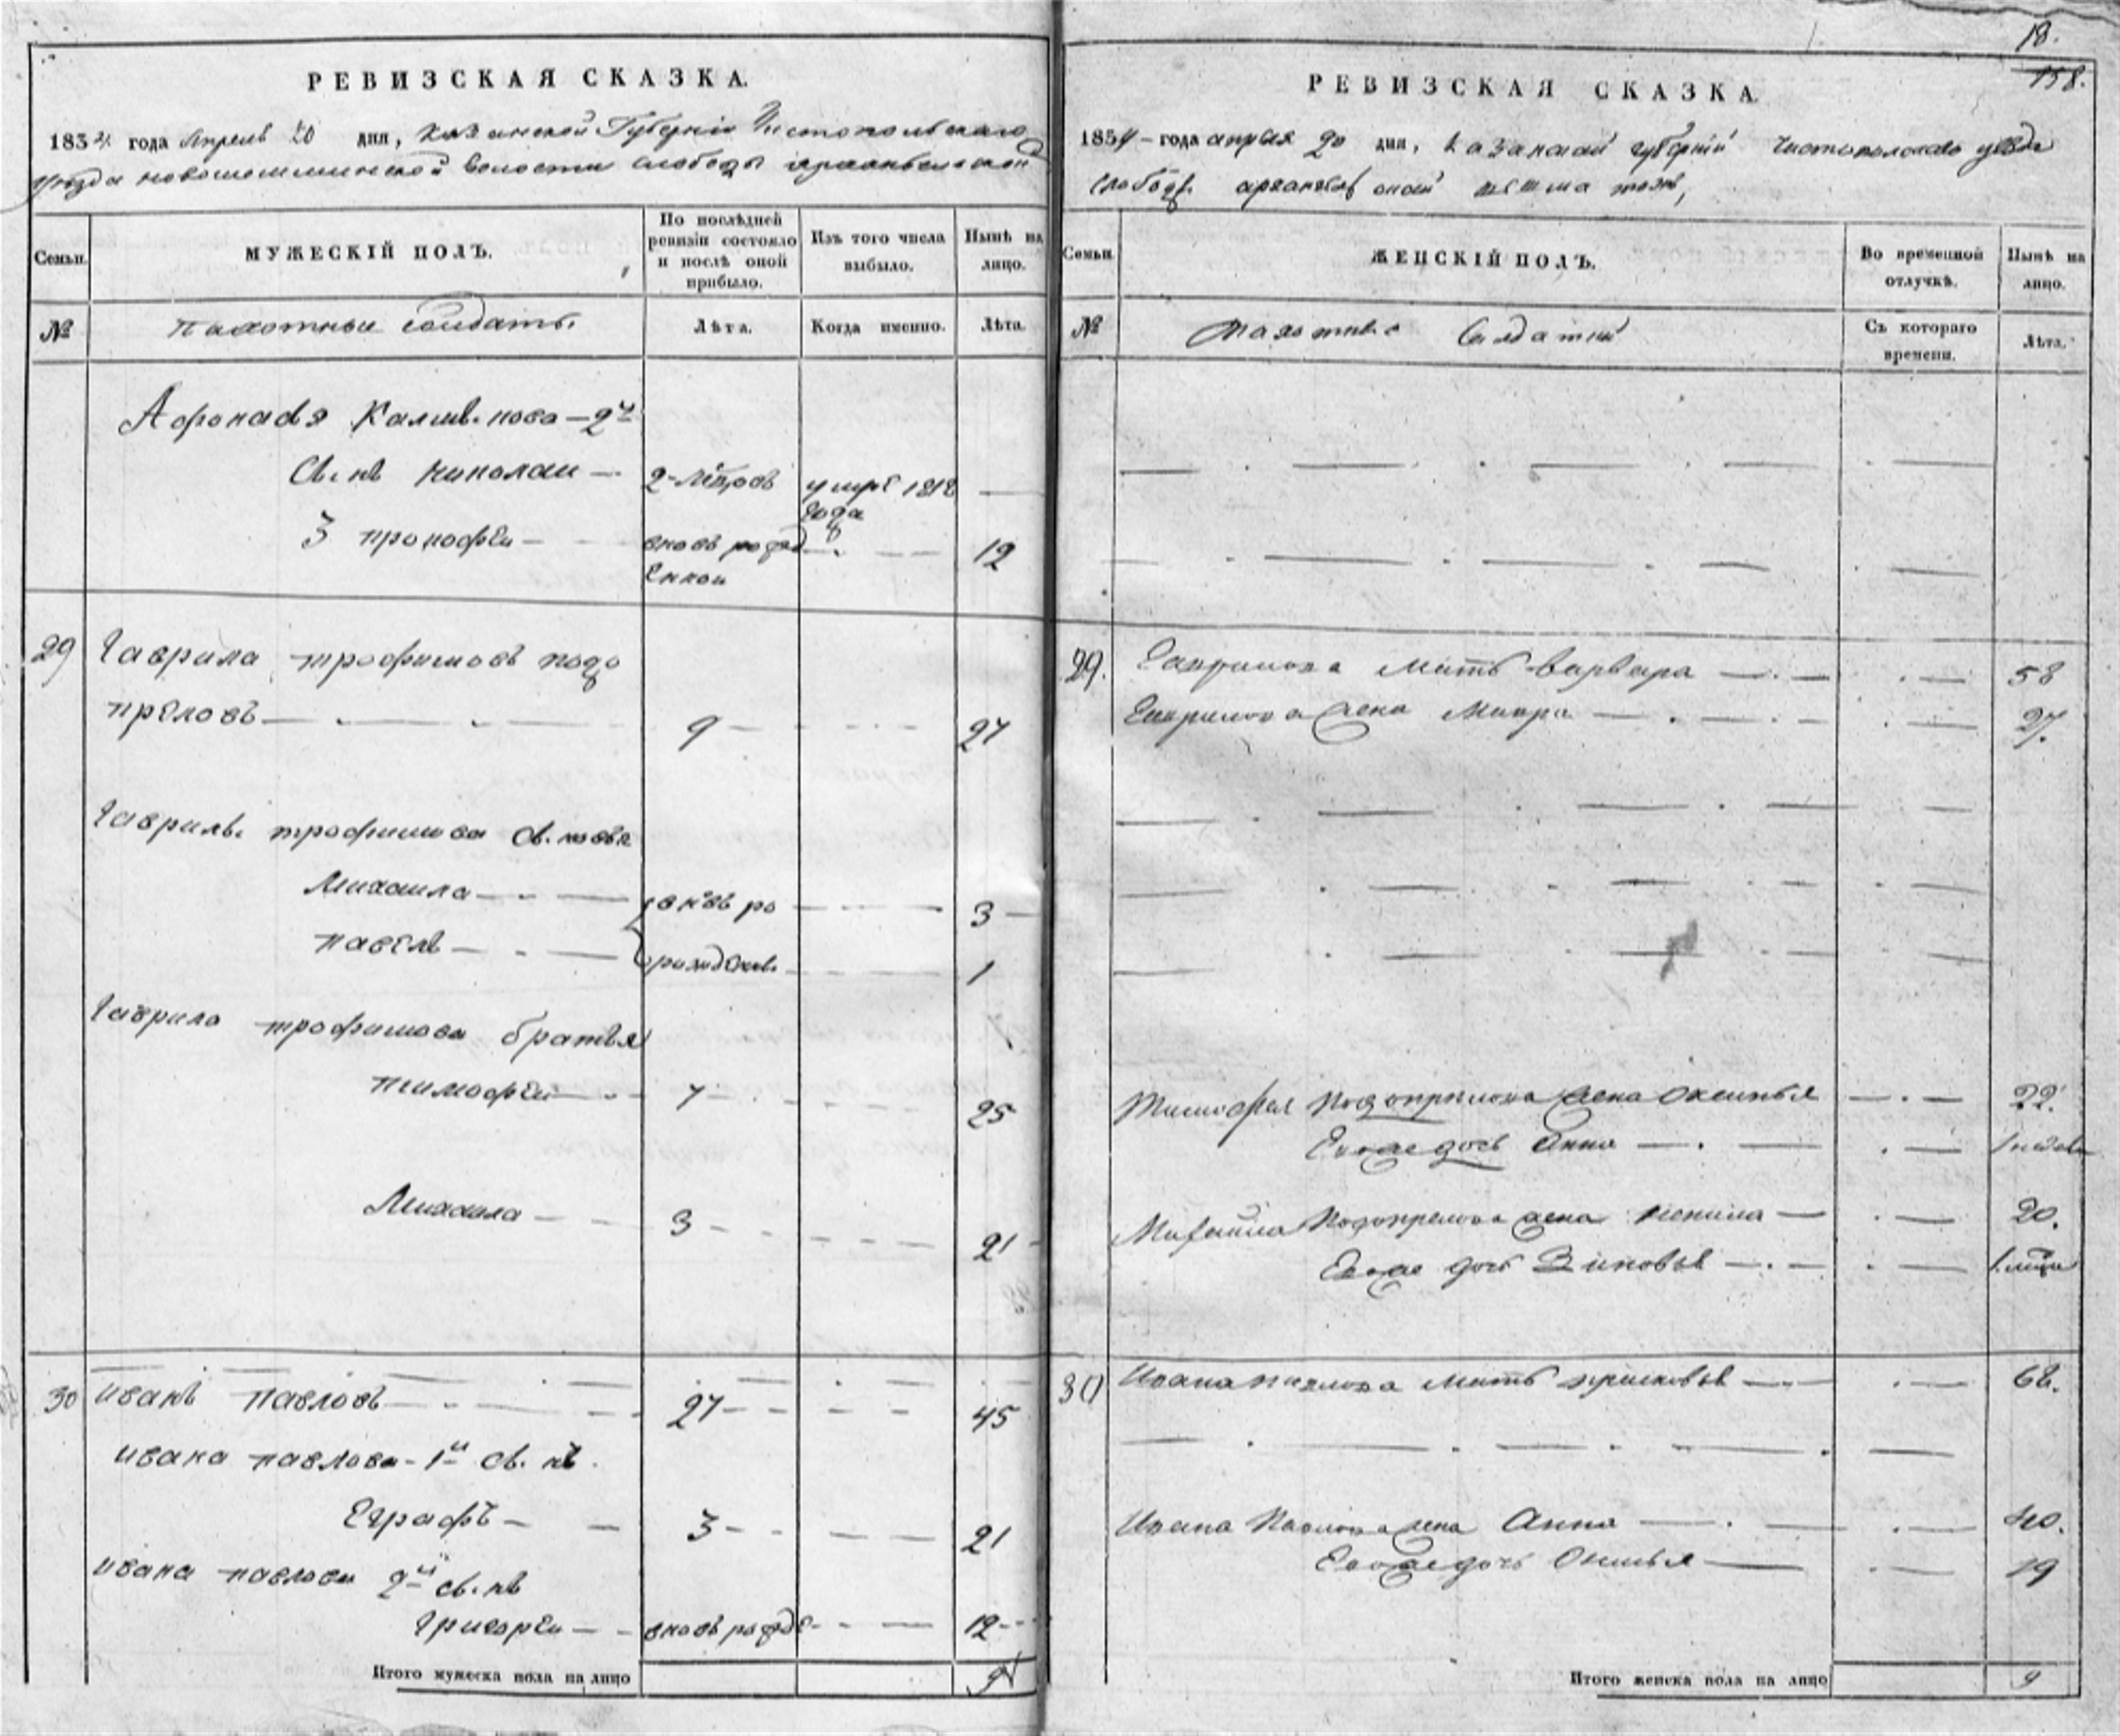 РЕВИЗСКАЯ СКАЗКА.
1834 года Апрель 20 дня, Казанской Губернiи Чистопольскаго
уезда новошешминской волости слободы
МУЖЕСКIЙ ПОЛЪ.
По послѣдней ревизiи состояло и послѣ оной прибыло.
Изъ того числа выбыло.
Нынѣ на лицо.
Семьи.
№
пахотные солдаты.
Лѣта.
Когда именно.
Лѣта.
2й
Сынъ николаи 2-летовъ умре 1818 года
3 прокофеи вновь рожденнои 12
29 Гаврила трофимовъ подо
преловъ 9 27
Гаврилы трофимова сыновья
Михаила вновь ро 3
павелъ рожденны 1
Гаврила трофимова братья
тимофеи 7 25
Михаила 3 21
30 иванъ павловъ 27 45
ивана павлова 1й сынъ
Еграфъ 3 21
ивана павлова 2й сынъ
григореи вновь рожде 12
Итого мужеска пола на лицо 9
18.
158.
РЕВИЗСКАЯ СКАЗКА.
1834 года апреля 20 дня, Казанской губернiй Чистополскаго уезда
слободы архангелской шешма тожъ,
Семьи.
ЖЕНСКIЙ ПОЛЪ.
Во временной отлучкѣ.
Нынѣ на лицо.
№
Пахотные Солдатки
Съ котораго времени.
Лѣта.
29. Гаврилова Мать варвара 58
Гаврилова жена Мавра 27.
Тимофея Подопрелова жена Оксинья 22.
Евоже дочь Анна
Михаила Подопрелова жена 20.
Евоже дочь Зиновья
30 Ивана павлова мать прасковья 68.
Ивана Павлова жена Анна 40.
Евоже дочь 19
Итого женска пола на лицо 9